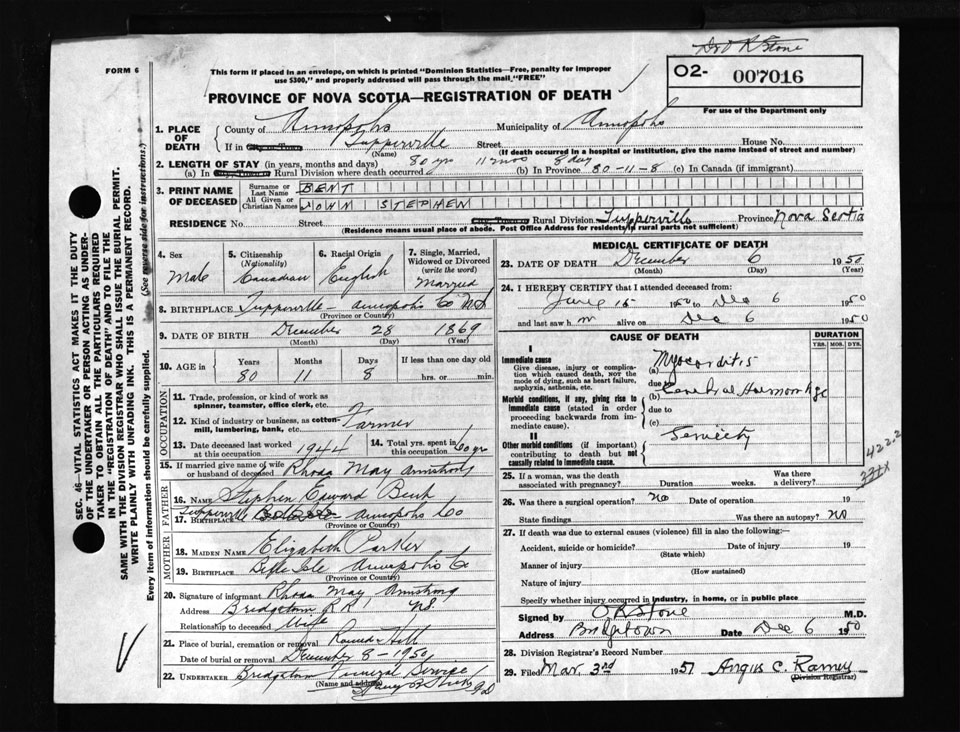 Dr O R Stone
FORM 6
This form if placed in an envelope, on which is printed "Dominion Statistics—Free, penalty for improper
use $300," and properly addressed will pass through the mail "FREE"
O2- 007016
PROVINCE OF NOVA SCOTIA—REGISTRATION OF DEATH
For use of the Department only
1. PLACE OF DEATH County of Annapolis Municipality of Annapolis
If in Tupperville Street House No.
(Name) (If death occurred in a hospital or institution, give the name instead of street and number)
2. LENGTH OF STAY (in years, months and days) 80 yrs 11 mos 8 day
(a) In Rural Division where death occurred (b) In Province 80-11-8 (c) In Canada (if immigrant)
3. PRINT NAME OF DECEASED Surname or Last Name BENT
All Given or Christian Names JOHN STEPHEN
RESIDENCE No. Street Rural Division Tupperville Province Nova Scotia
(Residence means usual place of abode. Post Office Address for residents in rural parts not sufficient)
4. Sex Male
5. Citizenship (Nationality) Canadian
6. Racial Origin English
7. Single, Married, Widowed or Divorced (write the word) Married
8. BIRTHPLACE Tupperville Annapolis Co NS
(Province or Country)
9. DATE OF BIRTH December 28 1869
(Month) (Day) (Year)
10. AGE in Years 80 Months 11 Days 8 If less than one day old hrs. or min.
OCCUPATION
11. Trade, profession, or kind of work as spinner, teamster, office clerk, etc.
12. Kind of industry or business, as cotton-mill, lumbering, bank, etc. Farmer
13. Date deceased last worked at this occupation 1944
14. Total yrs. spent in this occupation 60 yrs
15. If married give name of wife or husband of deceased Rhoda May Armstrong
FATHER
16. NAME Stephen Edward Bent
17. BIRTHPLACE Tupperville Annapolis Co
(Province or Country)
MOTHER
18. MAIDEN NAME Elizabeth Parker
19. BIRTHPLACE Belle Isle Annapolis Co
(Province or Country)
20. Signature of informant Rhoda May Armstrong
Address Bridgetown RR NS.
Relationship to deceased Wife
21. Place of burial, cremation or removal Round Hill
Date of burial or removal December 8-1950
22. UNDERTAKER Bridgetown Funeral Service
(Name and address)
MEDICAL CERTIFICATE OF DEATH
23. DATE OF DEATH December 6 1950
(Month) (Day) (Year)
24. I HEREBY CERTIFY that I attended deceased from
June 15 1950 to Dec 6 1950
and last saw h m alive on Dec 6 1950
CAUSE OF DEATH
DURATION
YRS. MOS. DYS.
I
Immediate cause
Give disease, injury or complication which caused death, not the mode of dying, such as heart failure, asphyxia, asthenia, etc.
(a) Myocarditis
due to
Morbid conditions, if any, giving rise to immediate cause (stated in order proceeding backwards from immediate cause).
(b) Cerebral Hemorrhage
due to
(c)
II
Other morbid conditions (if important) contributing to death but not causally related to immediate cause.
Senility
422.2
331x
25. If a woman, was the death associated with pregnancy? Duration weeks. Was there a delivery?
26. Was there a surgical operation? No Date of operation 19
State findings Was there an autopsy? No
27. If death was due to external causes (violence) fill in also the following:—
Accident, suicide or homicide? Date of injury 19
(State which)
Manner of injury
(How sustained)
Nature of injury
Specify whether injury occurred in industry, in home, or in public place
Signed by O R Stone M.D.
Address Bridgetown Date Dec 6 1950
28. Division Registrar's Record Number
29. Filed Mar 3rd 1951 Angus C. Ramey
(Division Registrar)
SEC. 46—VITAL STATISTICS ACT MAKES IT THE DUTY
OF THE UNDERTAKER OR PERSON ACTING AS UNDER-
TAKER TO OBTAIN ALL THE PARTICULARS REQUIRED
IN THE "REGISTRATION OF DEATH" AND TO FILE THE
SAME WITH THE DIVISION REGISTRAR WHO SHALL ISSUE THE BURIAL PERMIT.
WRITE PLAINLY WITH UNFADING INK. THIS IS A PERMANENT RECORD.
Every item of information should be carefully supplied. (See reverse side for instructions.)